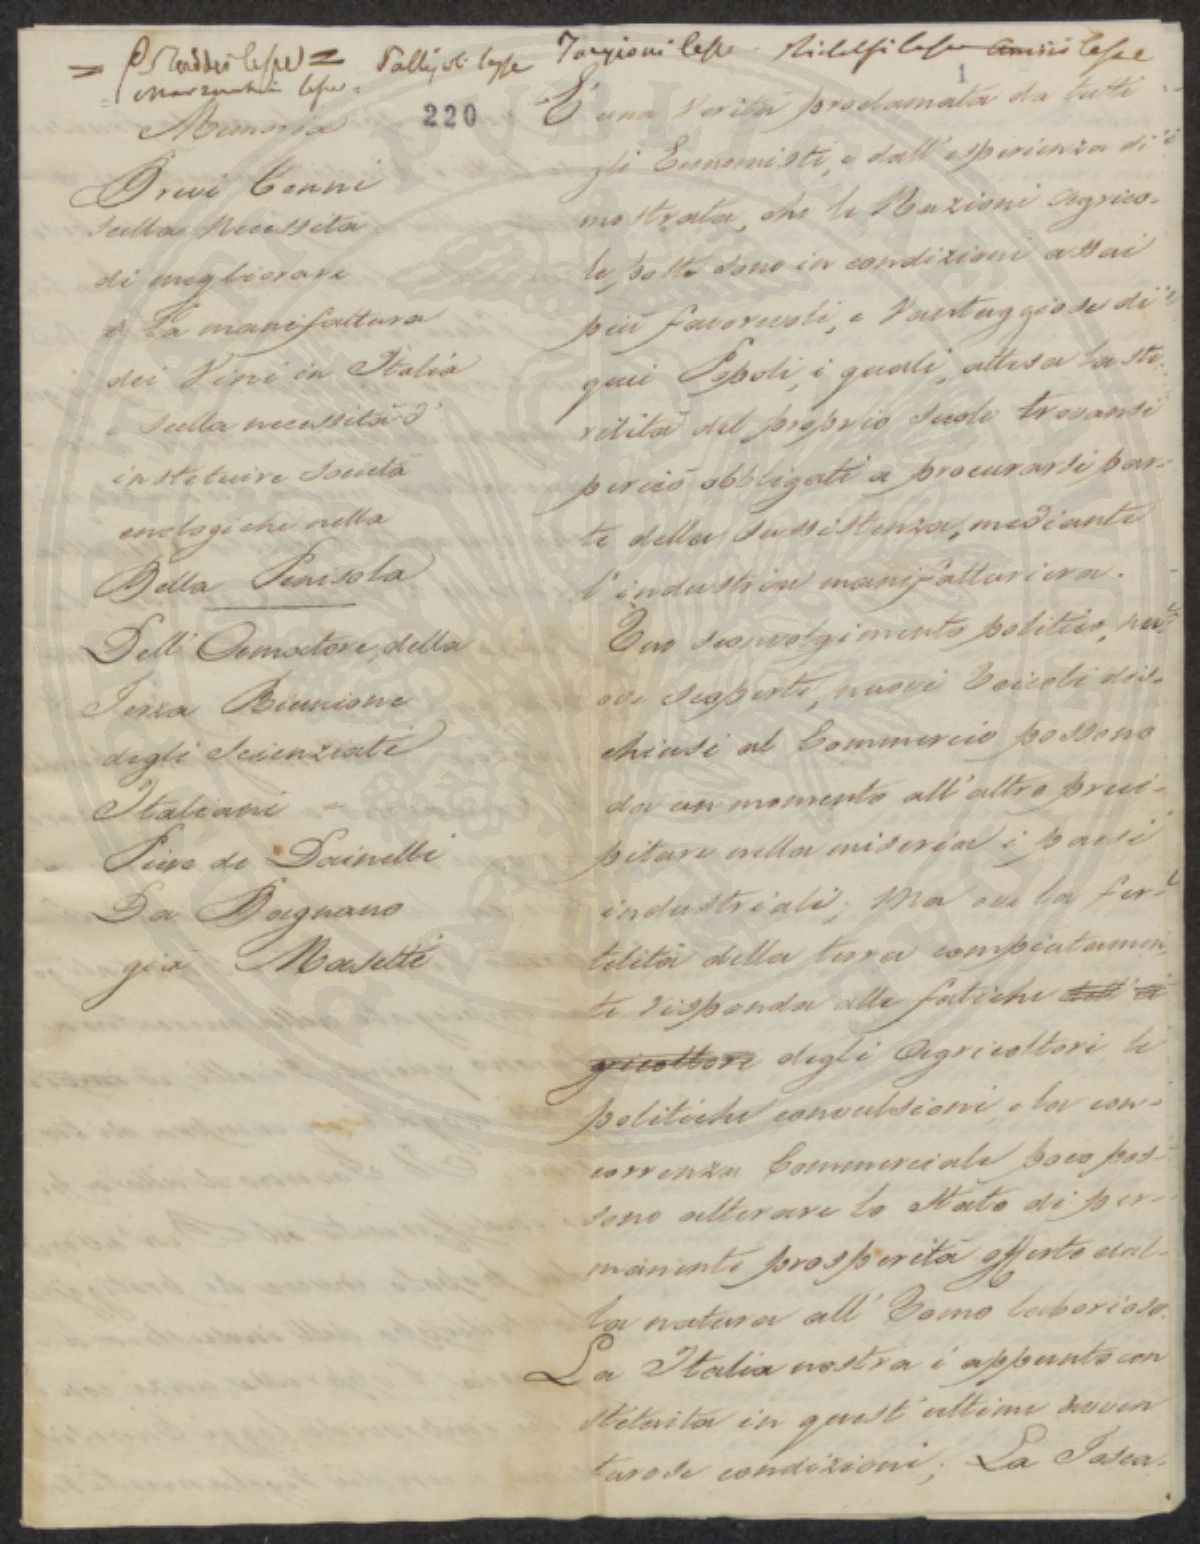 = P. Taddei lesse = Vallezoli lesse Targioni lesse. Ridolfi lesse Amici lesse
Marzucchi lesse.
220
1
Memoria
Brevi Cenni
sulla necessità
di migliorare
la manifattura
dei Vini in Italia
e sulla necessità d'
instituire società
enologiche nella
Bella Penisola
Dell' Amatore della
Terza Riunione
degli Scienziati
Italiani
Piero de Dainelli
Da Bagnano
già Masetti
È una Verità proclamata da tutti
gli Economisti, e dall'esperienza di=
mostrata, che le Nazioni Agrico-
le, poste sono in condizioni assai
più favorevoli, e Vantaggiose di
quei Popoli, i quali, attesa la ste-
rilità del proprio suolo trovansi
perciò obbligati a procurarsi par-
te della sussistenza, mediante
l'industria manifatturiera.
Uno sconvolgimento politico, nu=
ove scoperte, nuovi Veicoli dis-
chiusi al Commercio possono
da un momento all'altro preci-
pitare nella miseria i paesi
industriali; Ma ove la fer-
tilità della terra compiutamen-
te risponda alle fatiche dell' A
gricoltore degli Agricoltori le
politiche convulsioni, e la con-
correnza Commerciale poco pos-
sono alterare lo Stato di per-
manente prosperità offerto dal-
la natura all' Uomo laborioso.
La Italia nostra è appunto con
stituita in quest'ultime avven
turose condizioni; La Tosca-